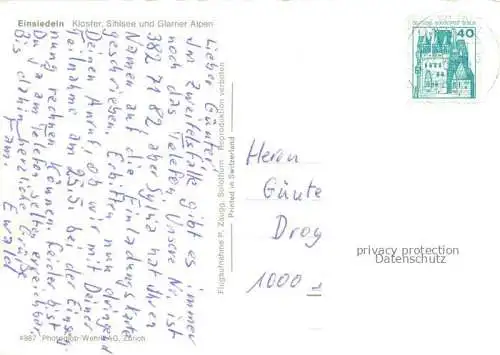 Einsiedeln Kloster, Sihlsee und Glarner Alpen
Lieber Günter!
Im Zweifelsfalle gibt es immer
noch das Telefon. Unsere Nr. ist
382 71 82 aber Sylvia hat Ihren
Namen auf die Einladungskarte
geschrieben. Erbitten nun dringend
Deinen Anruf, ob wir mit Deiner
Teilnahme am 25.5. bei der Einseg-
nung rechnen können. Leider bist
Du ja am Telefon selten erreichbar.
Bis dahin herzliche Grüße
Fam. Ewald
4387 Photoglob-Wehrli AG, Zürich
Flugaufnahme P. Zaugg, Solothurn Reproduktion verboten
Printed in Switzerland
DEUTSCHE BUNDESPOST BERLIN
40
Herrn
Günte
Droy
1000
privacy protection
Datenschutz